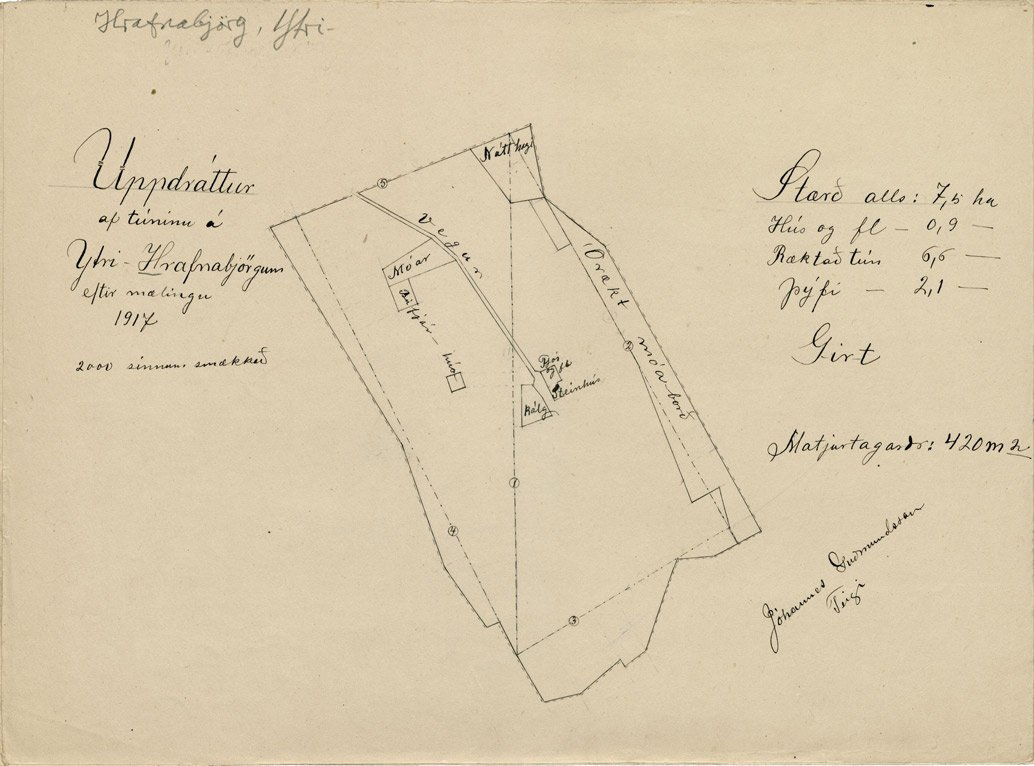 Hrafnabjörg, Ytri-
Uppdráttur
af túninu á
Ytri-Hrafnabjörgum
eftir mælingu
1917
2000 sinnum smækkað
Nátthagi
Vegur
Móar
hús
Steinhús
Kálg
Órækt móaborð
5
2
1
4
3
Stærð alls: 7,5 ha
Hús og fl — 0,9 —
Ræktað tún 6,6 —
Þýfi — 2,1 —
Girt
Matjurtagarðr: 420 m2
Jóhannes Guðmundsson
Teigi